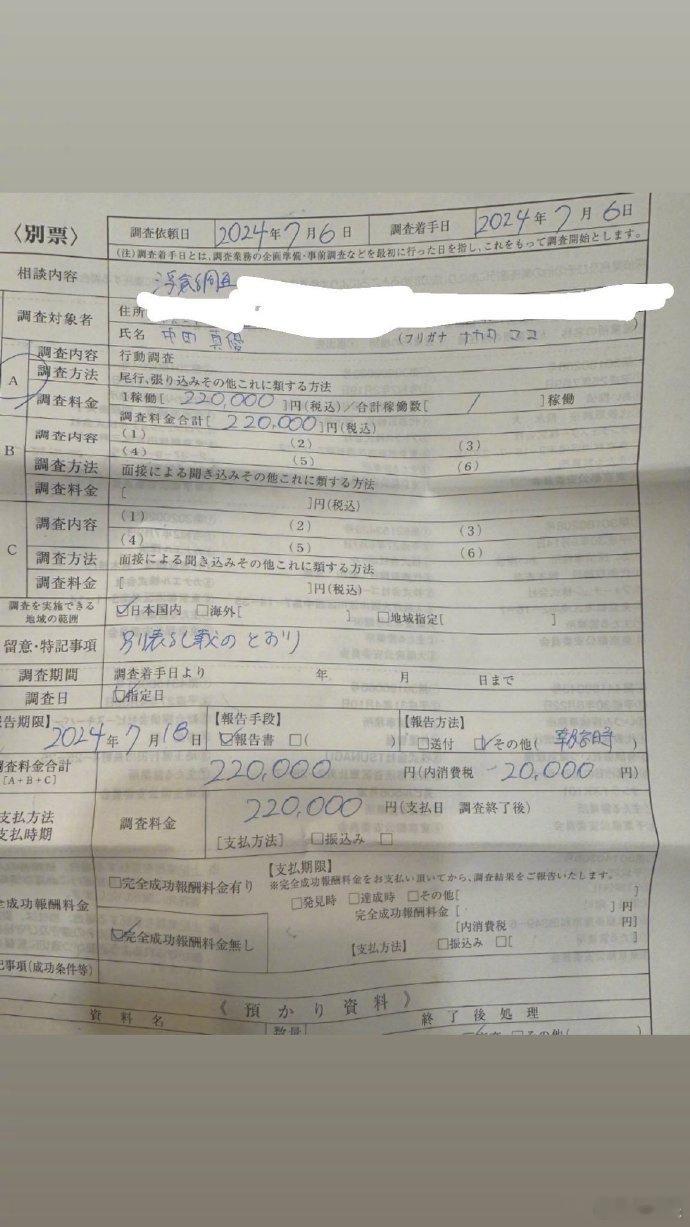 〈別票〉
調査依頼日 2024年7月6日 調査着手日 2024年7月6日
(注)調査着手日とは、調査業務の企画準備・事前調査などを最初に行った日を指し、これをもって調査開始とします。
相談内容 浮気調査
調査対象者 住所
氏名 中田 真優 (フリガナ ナカタ マユ )
A 調査内容 行動調査
調査方法 尾行、張り込みその他これに類する方法
調査料金 1稼働[ 220,000 ]円(税込)/合計稼働数[ / ]稼働
調査料金合計[ 220,000 ]円(税込)
B 調査内容 (1) (2) (3)
(4) (5) (6)
調査方法 面接による聞き込みその他これに類する方法
調査料金 [ ]円(税込)
C 調査内容 (1) (2) (3)
(4) (5) (6)
調査方法 面接による聞き込みその他これに類する方法
調査料金 [ ]円(税込)
調査を実施できる地域の範囲 ☑日本国内 □海外[ ] □地域指定[ ]
留意・特記事項 のとおり
調査期間 調査着手日より 年 月 日まで
調査日 ☑指定日
報告期限】 2024年7月18日 【報告手段】 ☑報告書 □( ) 【報告方法】 □送付 ☑その他( )
調査料金合計 [A+B+C] 220,000 円(内消費税 20,000 円)
支払方法 支払時期 調査料金 220,000 円(支払日 調査終了後)
[支払方法] □振込み □
全成功報酬料金 □完全成功報酬料金有り 【支払期限】
※完全成功報酬料金をお支払い頂いてから、調査結果をご報告いたします。
□発見時 □達成時 □その他[ ]
完全成功報酬料金 [ ]円
[内消費税 円]
☑完全成功報酬料金無し 【支払方法】 □振込み □[ ]
記事項(成功条件等)
《 預かり資料 》
資料名 数量 終了後処理
□その他(